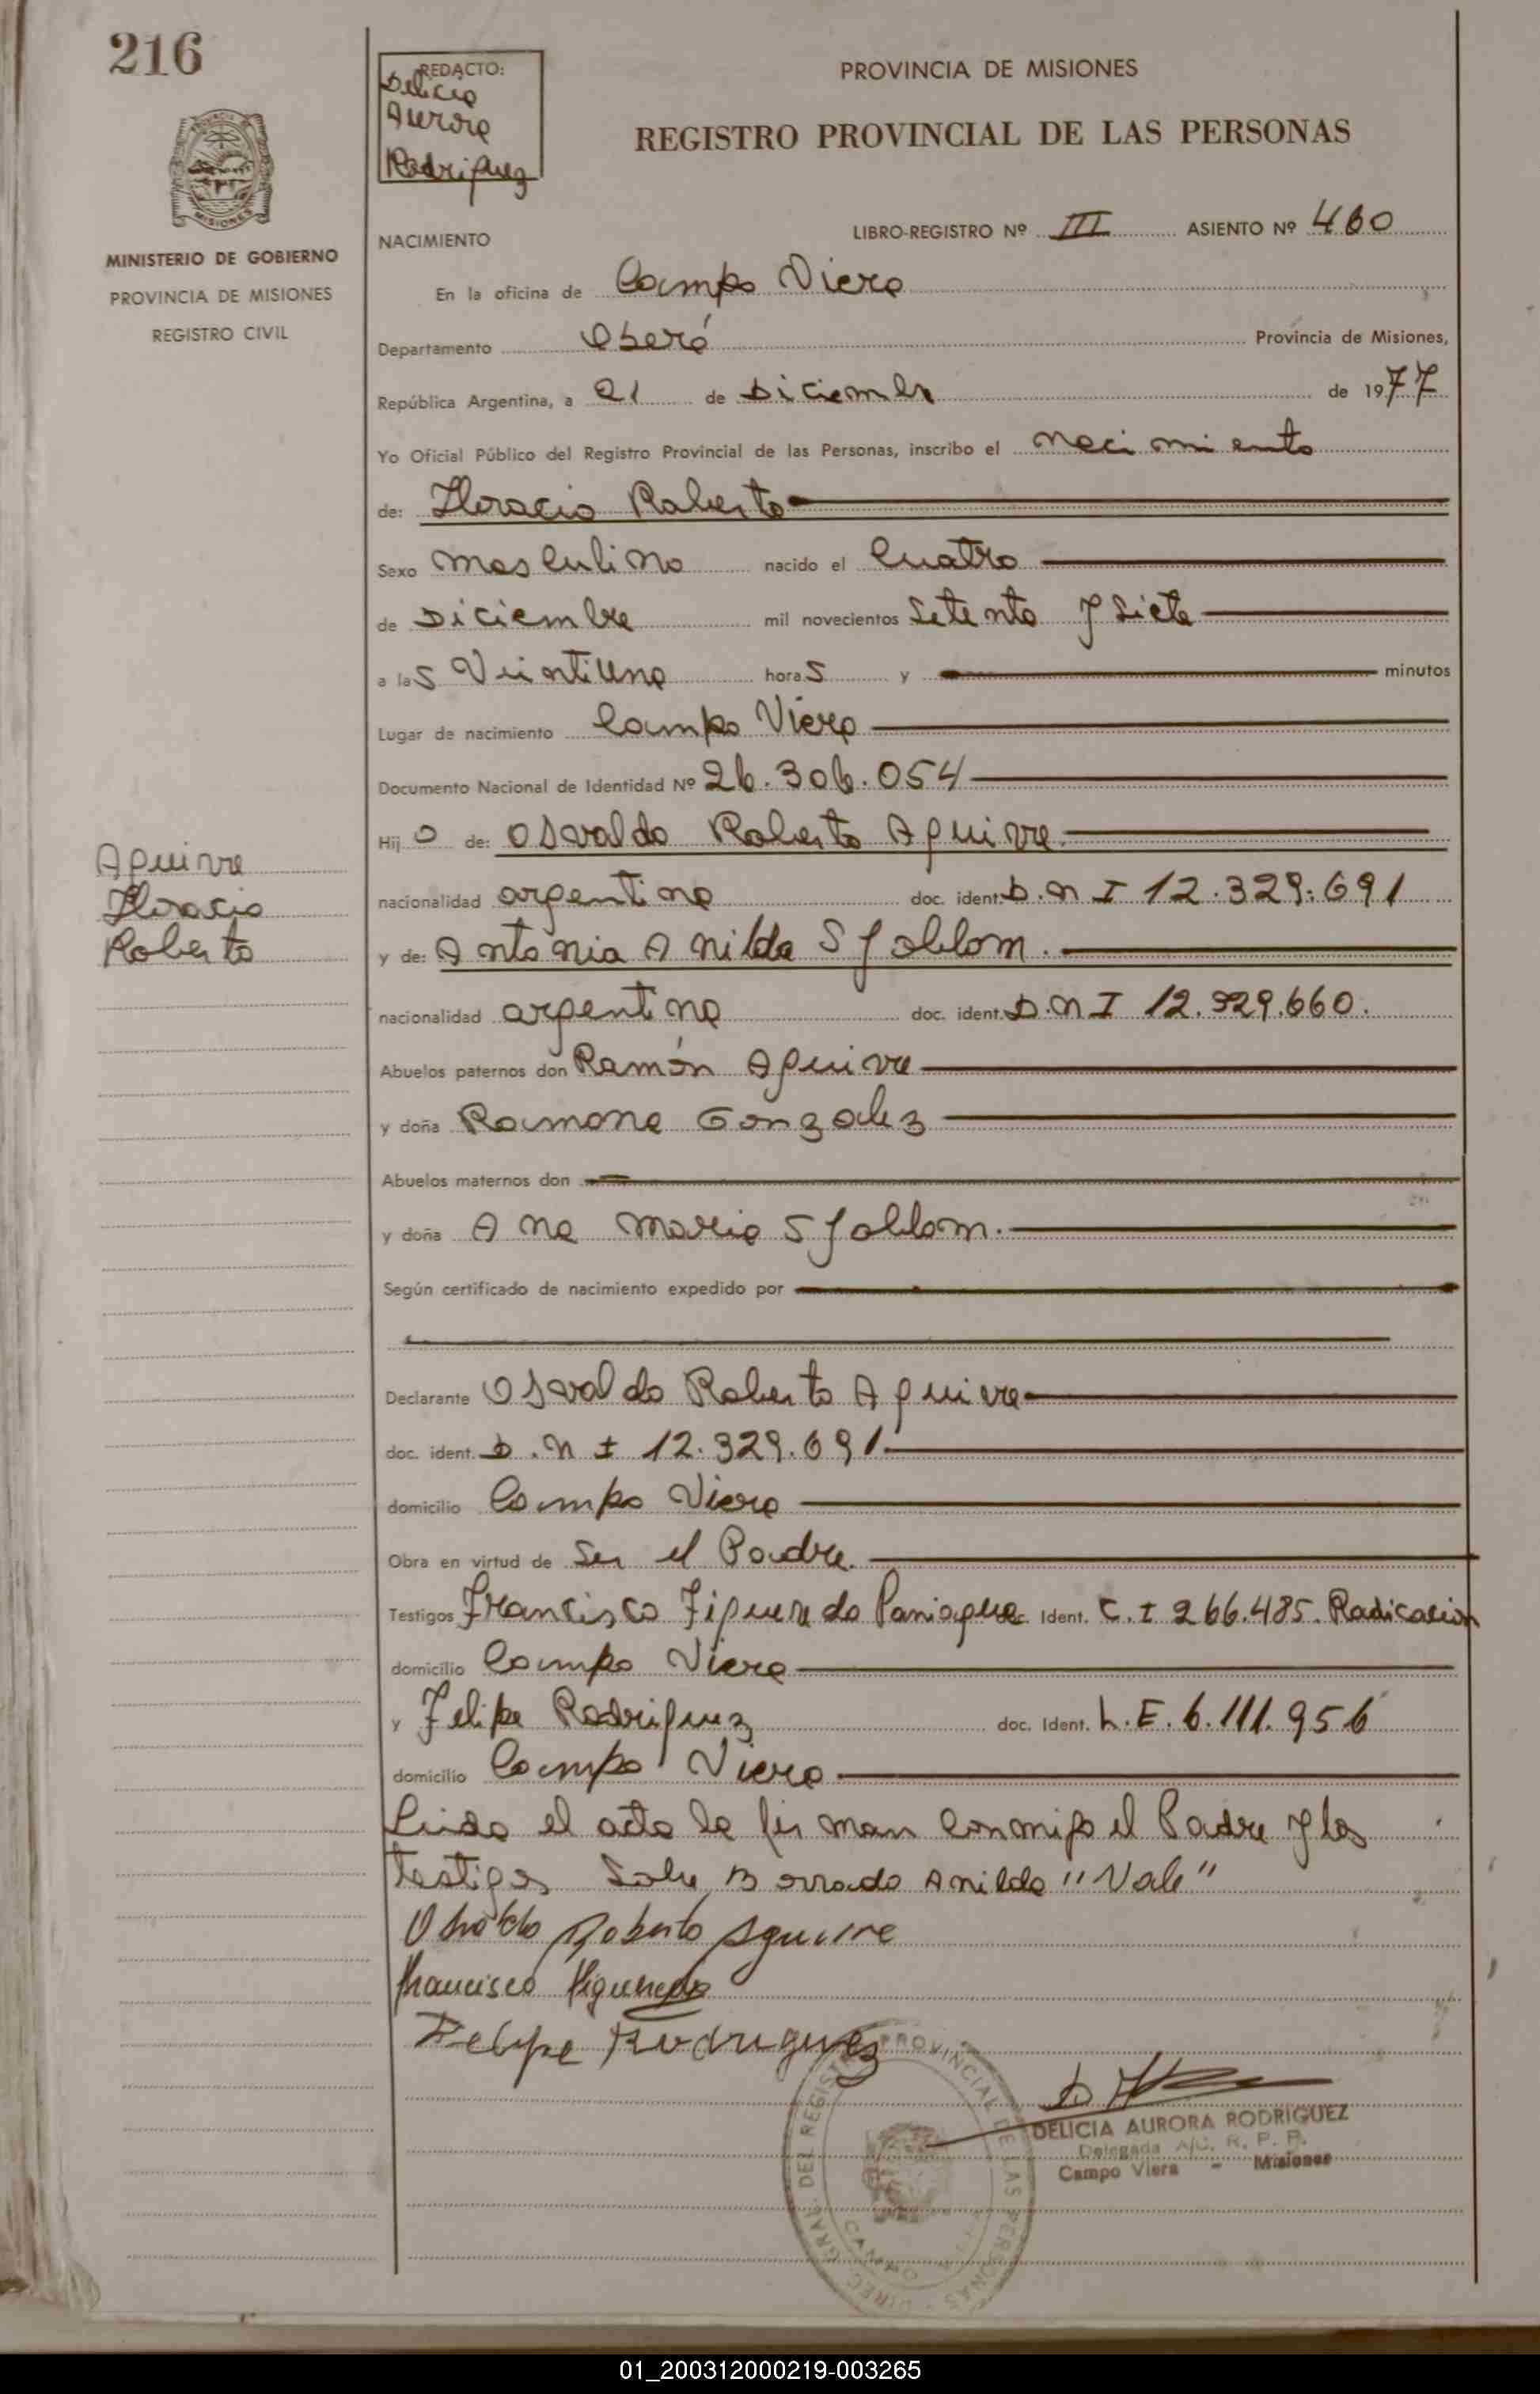 216
REDACTO:
Delicia
Aurora
Rodriguez
PROVINCIA DE MISIONES
REGISTRO PROVINCIAL DE LAS PERSONAS
MISIONES
MINISTERIO DE GOBIERNO
PROVINCIA DE MISIONES
REGISTRO CIVIL
NACIMIENTO
LIBRO-REGISTRO Nº III ASIENTO Nº 460
En la oficina de Campo Viera
Departamento Oberá Provincia de Misiones,
República Argentina, a 21 de Diciembre de 1977
Yo Oficial Público del Registro Provincial de las Personas, inscribo el nacimiento
de: Horacio Roberto
Sexo masculino nacido el Cuatro
de Diciembre mil novecientos Setenta y Siete
a las Veintiuna horas y minutos
Lugar de nacimiento Campo Viera
Documento Nacional de Identidad Nº 26.306.054
Hijo de: Osvaldo Roberto Aguirre
Aguirre
Horacio
Roberto
nacionalidad argentina doc. ident. D.N I 12.329.691
y de: Antonia Anilda Sjoblom.
nacionalidad argentina doc. ident. D.N I 12.929.660.
Abuelos paternos don Ramón Aguirre
y doña Ramona Gonzalez
Abuelos maternos don
y doña Ana Maria Sjoblom.
Según certificado de nacimiento expedido por
Declarante Osvaldo Roberto Aguirre
doc. ident. D.N I 12.329.691
domicilio Campo Viera
Obra en virtud de Ser el Padre.
Testigos Francisco Figueredo Paniagua c. Ident. C.I 266.485. Radicacion
domicilio Campo Viera
y Felipe Rodriguez doc. Ident. L.E. 6.111.956
domicilio Campo Viera
Leida el acta la firman conmigo el Padre y los
testigos Sobre Borrado Anilda "Vale"
Osvaldo Roberto Aguirre
Francisco Figueredo
Felipe Rodriguez
DIREC. GRAL. DEL REGISTRO PROVINCIAL DE LAS PERSONAS
CAMPO
DELICIA AURORA RODRIGUEZ
Delegada A/C. R. P. P.
Campo Viera - Misiones
01_200312000219-003265